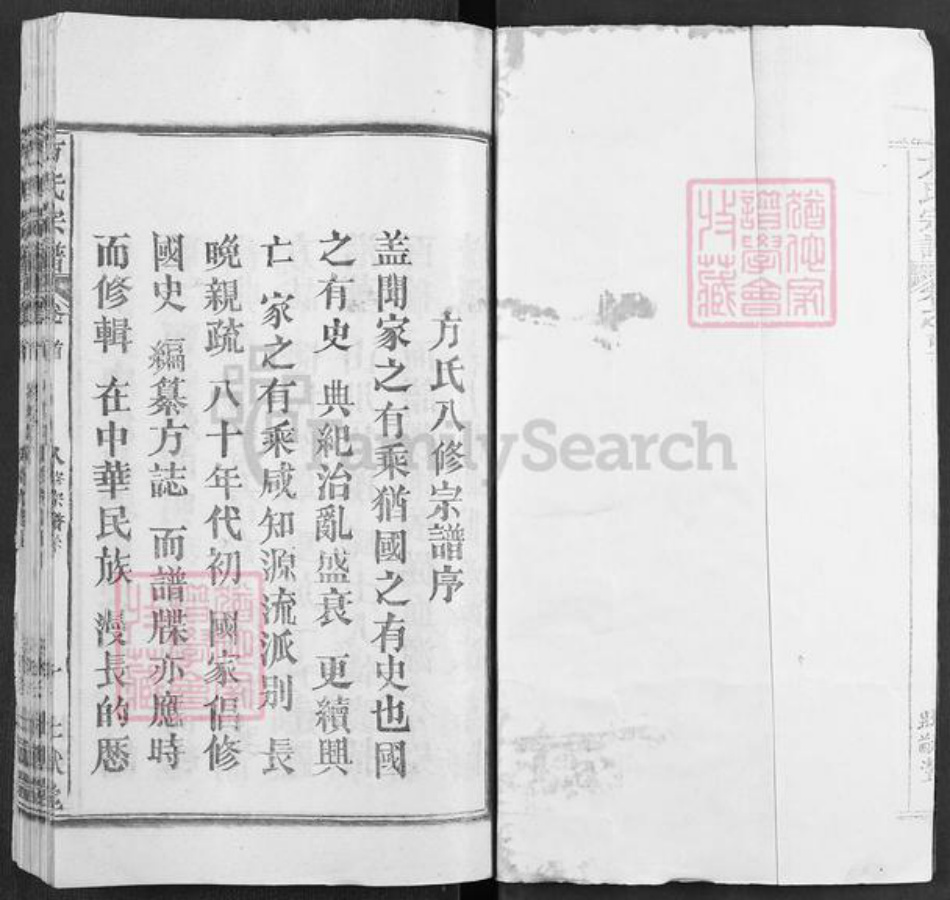 方氏八修宗譜序
盖聞家之有乘猶國之有史也國
之有史 典紀治亂盛衰 更續興
亡 家之有乘咸知源流派別 長
晚親疏 八十年代初 國家倡修
國史 編纂方誌 而譜牒亦應時
而修輯 在中華民族 漫長的歷
方氏宗譜
卷首
FamilySearch
譜學會
收藏